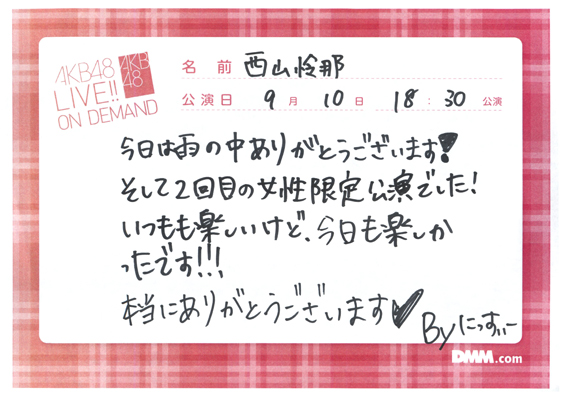 AKB48
LIVE!!
ON DEMAND
AKB
48
名 前 西山怜那
公演日 9月 10日 18:30 公演
今日は雨の中ありがとうございます!
そして2回目の女性限定公演でした!
いつもも楽しいけど、今日も楽しか
ったです!!!
本当にありがとうございます♥
Byにっすぃー
DMM.com